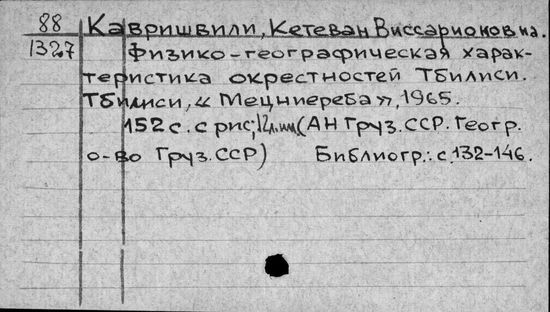 88 Кавришвили, Кетеван Виссарионовна.
1327 Физико-географическая харак-
теристика окрестностей Тбилиси.
Тбилиси, «Мецниереба», 1965.
152 с. с рис; (АН Груз.ССР. Геогр.
о-во Груз.ССР) Библиогр.: с.132-146.